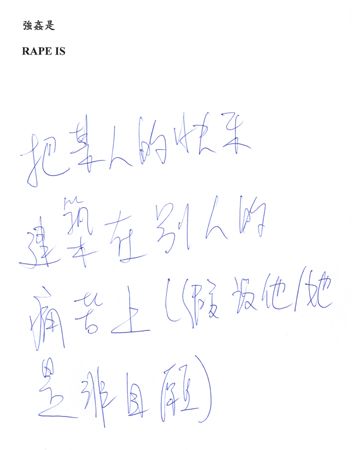 強姦是
RAPE IS
把某人的快乐
建筑在别人的
痛苦上（假设他/她
是非自願）